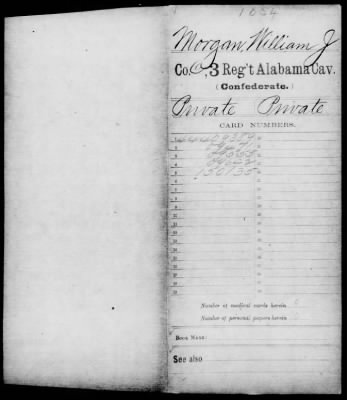 1054
Morgan, William J
Co. C, 3 Reg't Alabama Cav.
(Confederate.)
Private Private
CARD NUMBERS.
1
2
3
4
5
6
7
8
9
10
11
12
13
14
15
16
17
18
Number of medical cards herein 0
Number of personal papers herein 0
BOOK MARK:
See also